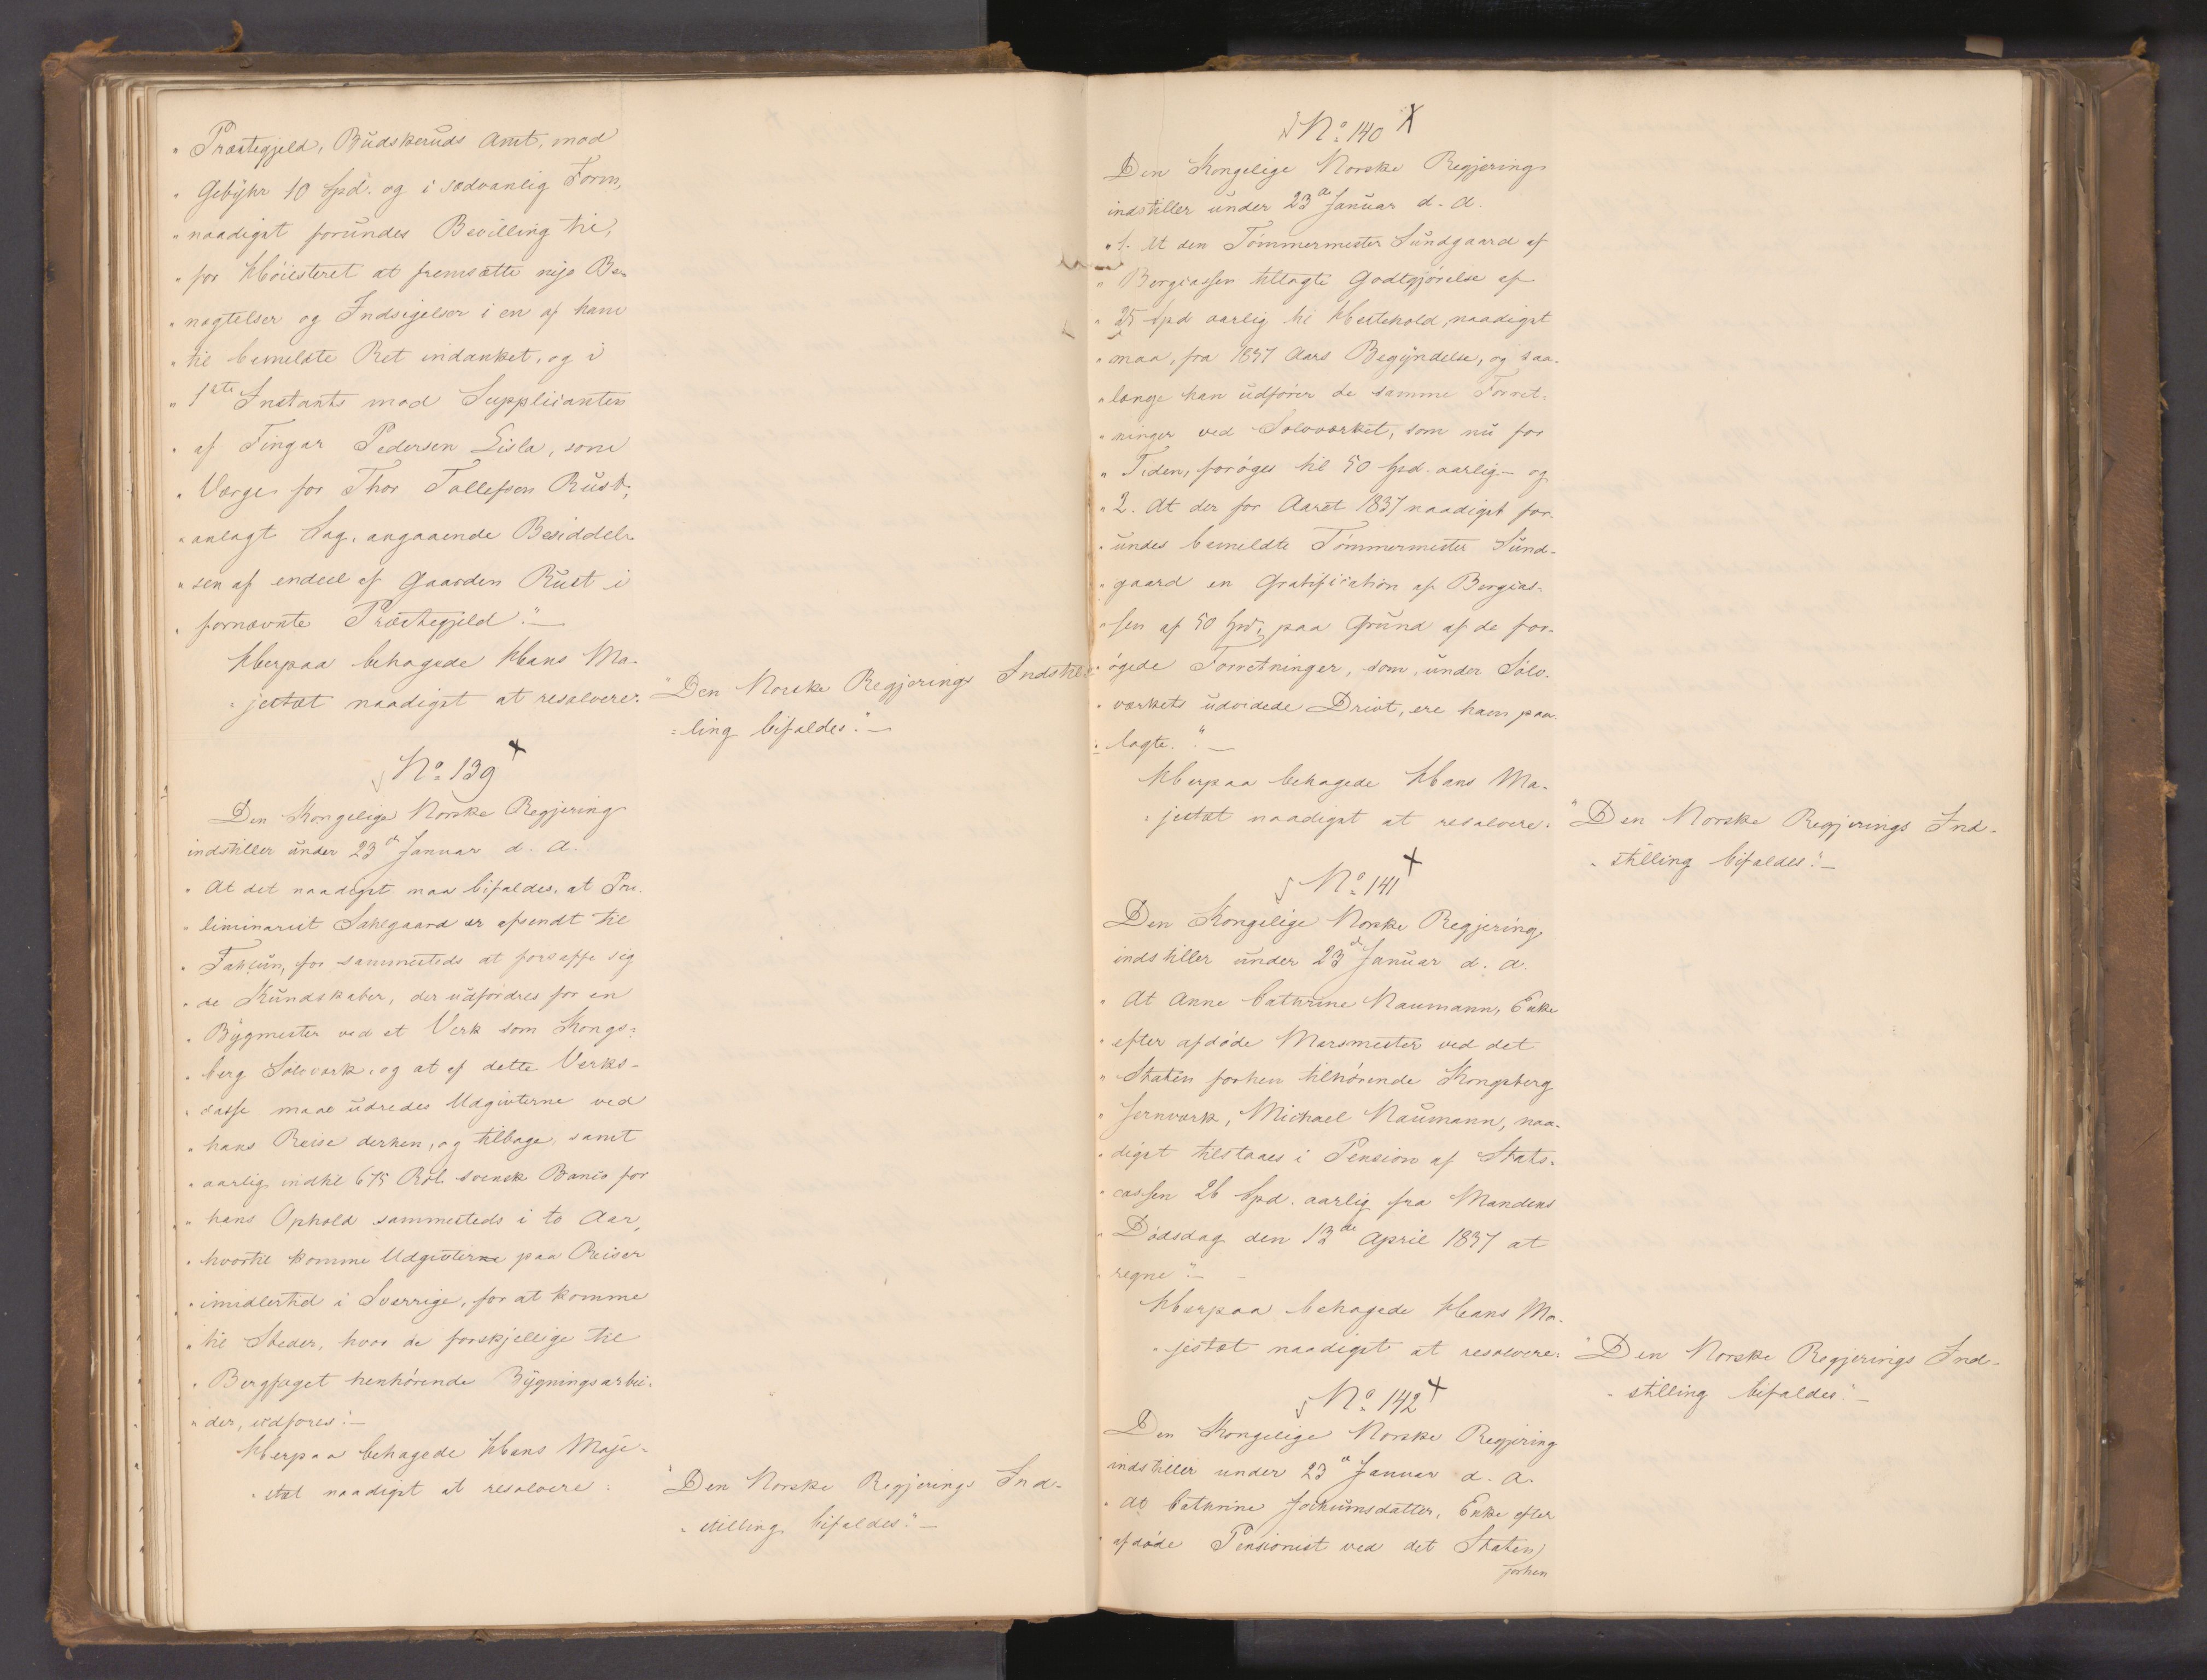 " Præstegjeld, Budskeruds Amt, mod
" Gebyhr 10 Spd. og i sædvanlig Form,
" naadigst forundes Bevilling til,
" for Høiesteret at fremsætte nye Be-
" nægtelser og Indsigelser i en af ham
" til bemeldte Ret indanket, og i
" 1ste Instants mod Supplicanten
" af Fingar Pedersen Lisla, som
" Værge for Thor Tollefsen Rust,
" anlagt Sag, angaaende Besiddel-
" sen af endeel af Gaarden Rust i
" fornævnte Præstegjeld." —
Herpaa behagede Hans Ma-
" jestæt naadigst at resolvere:
"Den Norske Regjerings Indstil-
" ling bifaldes." —
No 139 +
Den Kongelige Norske Regjering
indstiller under 23de Januar d. A.
" At det naadigst maa bifaldes, at Pre-
" liminarist Sahlgaard er afsendt til
" Fahlun, for sammesteds at forsaffe sig
" de Kundskaber, der udfordres for en
" Bygmester ved et Verk som Kongs-
" berg Sølvværk, og at af dette Verks-
" casse maae udredes Udgivterne ved
" hans Reise derhen, og tilbage, samt
" aarlig indtil 675 Rdl. svensk Banco for
" hans Ophold sammesteds i to Aar,
" hvortil komme Udgivterne paa Reiser
" imidlertid i Sverrige, for at komme
" til Steder, hvor de forskjellige til
" Bergfaget henhørende Bygningsarbei-
" der, udføres." —
Herpaa behagede Hans Maje-
" stæt naadigst at resolvere:
"Den Norske Regjerings Ind-
" stilling bifaldes." —
No 140 X
Den Kongelige Norske Regjering
indstiller under 23de Januar d. A.
" 1. At den Tømmermester Sundgaard af
" Bergcassen tillagte Godtgjørelse af
" 25 Spd aarlig til Hestehold, naadigst
" maa, fra 1837 Aars Begyndelse, og saa-
" længe han udfører de samme Forret-
" ninger ved Sølvværket, som nu for
" Tiden, forøges til 50 Spd. aarlig — og
" 2. At der for Aaret 1837 naadigst for-
" undes bemeldte Tømmermester Sund-
" gaard en Gratification af Bergcas-
" sen af 50 Spd, paa Grund af de for-
" øgede Forretninger, som, under Sølv-
" værkets udvidede Drivt, ere ham paa-
" lagte." —
Herpaa behagede Hans Ma-
" jestæt naadigst at resolvere:
"Den Norske Regjerings Ind-
" stilling bifaldes." —
No 141 +
Den Kongelige Norske Regjering
indstiller under 23de Januar d. A.
" At Anne Cathrine Naumann, Enke
" efter afdøde Marsmester ved det
" Staten forhen tilhørende Kongsberg
" Jernværk, Michael Naumann, naa-
" digst tilstaaes i Pension af Stats-
" cassen 26 Spd. aarlig fra Mandens
" Dødsdag den 13de April 1837 at
" regne" —
Herpaa behagede Hans Ma-
" jestæt naadigst at resolvere:
"Den Norske Regjerings Ind-
" stilling bifaldes" —
No 142 +
Den Kongelige Norske Regjering
indstiller under 23de Januar d. A.
" At Cathrine Jochumsdatter, Enke efter
" afdøde Pensionist ved det Staten
forhen